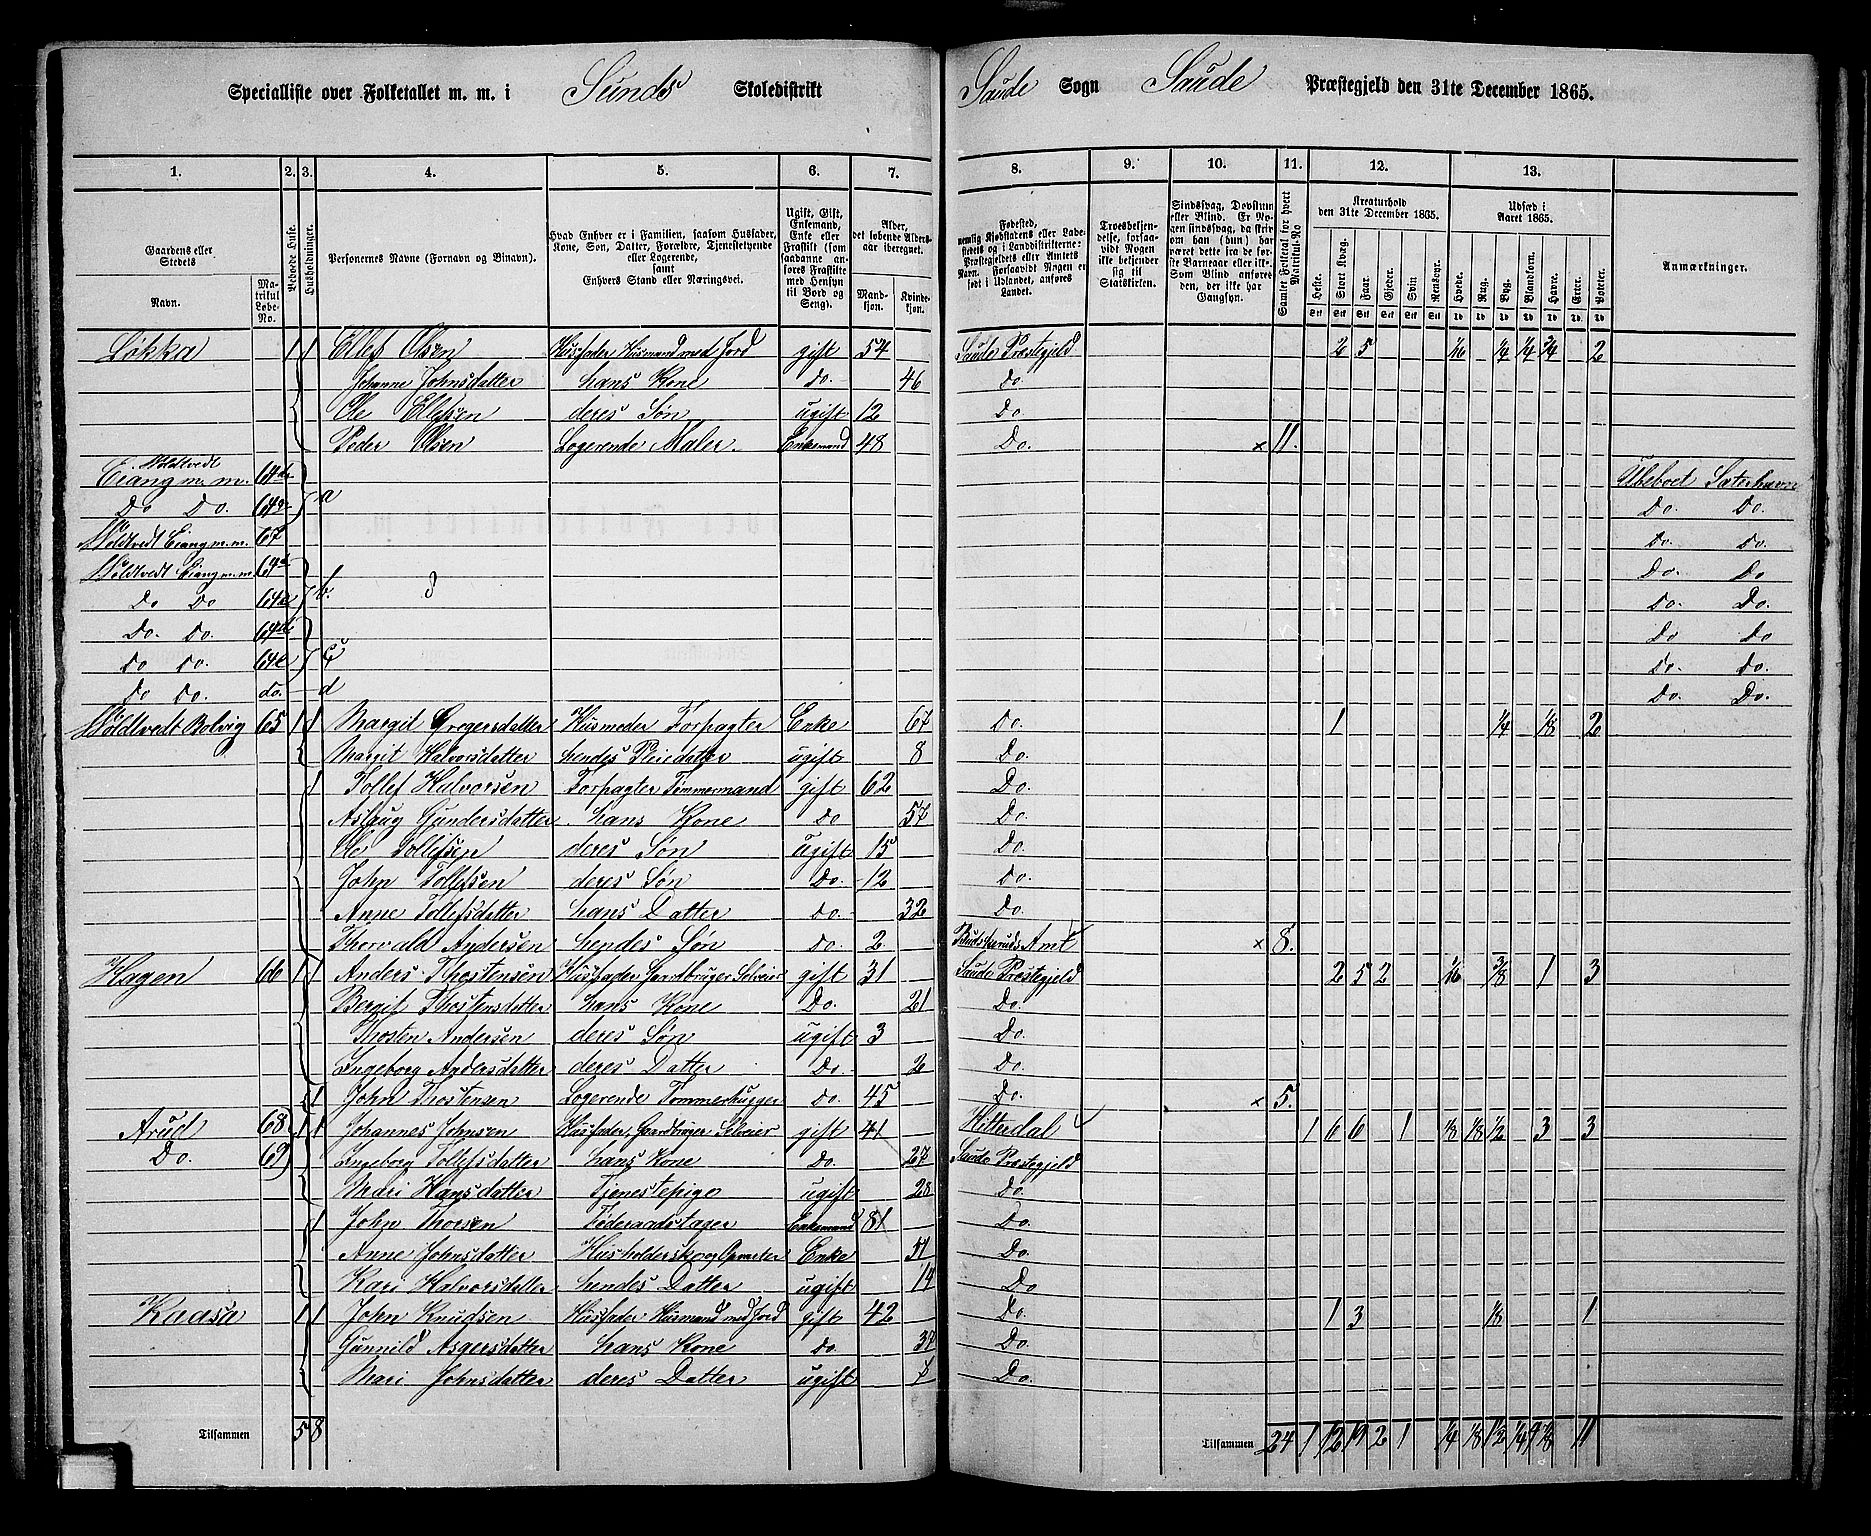 Specialliste over Folketallet m. m. i Sunds Skoledistrikt Saude Sogn Saude Præstegjeld den 31te December 1865.
1. 2. 3. 4. 5. 6. 7. 8. 9. 10. 11. 12. 13.
Gaardens eller Stedets Navn. Matrikul Løbe-No. Beboede Huse. Husholdninger. Personernes Navne (Fornavn og Binavn). Hvad Enhver er i Familien, saasom Husfader, Kone, Søn, Datter, Forældre, Tjenestetyende eller Logerende, samt Enhvers Stand eller Næringsvei. Ugift, Gift, Enkemand, Enke eller Fraskilt (som saadanne anføres Fraskilte med Hensyn til Bord og Seng). Alder, det løbende Aldersaar iberegnet. Mandkjøn. Kvindekjøn.
Fødested, nemlig Kjøbstadens eller Ladestedets eller i Landdistrikterne Præstegjeldets eller Amtets Navn. Forsaavidt Nogen er født i Udlandet, anføres Landet. Troesbekjendelse, forsaavidt Nogen ikke bekjender sig til Statskirken. Sindssvag, Døvstum eller Blind. Er Nogen sindssvag, da skrives om han (hun) har været dette fra de første Barneaar eller ikke. Som Blind anføres den, der ikke har Gangsyn. Samlet Folketal for hvert Matrikul-No. Kreaturhold den 31te December 1865. Udsæd i Aaret 1865. Anmærkninger.
Heste. Stort Kvæg. Faar. Gjeder. Svin Rensdyr. Hvede. Rug. Byg. Blandkorn. Havre. Erter. Poteter.
Løkka 1 1 Ellef Olsen Husfader Husmand med Jord gift 54 Saude Præstegjeld 2 5 1/16 1/4 1/4 3/4 2
Johanne Johnsdatter hans Kone Do. 46 Do
Ole Ellefsen deres Søn ugift 12 Do.
Peder Olsen Logerende Maler. Enkemand 48 Do. × 11.
Eiang m. m. Ubeboet
Do Do. a Do. Do.
Woldtvedt Eiang m. m. 67 Do. Do.
Woldtvedt Eiang m. m. Do. Do
Do Do b. Do. Do.
Do. Do. Do Do
Do Do. 64e c Do. Do.
Do Do. do. d Do. Do.
Woldtvedt Bolvig 65 1 1 Margit Gregersdatter Husmoder Forpagter Enke 67 Do. 1 1/4 1/8 2
Margit Halvorsdatter hendes Pleiedatter ugift 8 Do.
1 Tollef Halvorsen Forpagter Tømmermand gift 62 Do.
Aslaug Gundersdatter hans Kone Do 57 Do.
Ole Tollefsen deres Søn ugift 15 Do.
John Tollefsen deres Søn Do. 12 Do.
Anne Tollefsdatter hans Datter Do. 32 Do.
Thorvald Andersen hendes Søn Do. 2 Buskeruds Amt × 8.
Hagen 66 1 1 Anders Thostensen Husfader Gaardbruger Selveier gift 31 Saude Præstegjeld 2 5 2 1/16 3/8 1 3
Bergit Thostensdatter hans Kone Do. 21 Do.
Thosten Andersen deres Søn ugift 3 Do.
Ingeborg Andersdatter deres Datter Do. 2 Do.
1 John Thostensen Logerende Tømmerhugger Do. 45 Do. × 5.
Arud 68 1 1 Johannes Johnsen Husfader, Gaardbruger Selveier gift 41 Hitterdal 1 6 6 1 1/8 1/8 1/2 3 3
Do. 69 Ingeborg Tollefsdatter hans Kone Do. 27 Saude Præstegjeld
Mari Hansdatter Tjenestepige ugift 28 Do.
1 John Thorsen Føderaadstager Enkemand 81 Do.
Anne Johnsdatter Enke 51 Do.
Kari Halvorsdatter hendes Datter ugift 14 Do
Kaasa 1 1 John Knudsen Husfader Husmand med Jord gift 42 Do. 1 3 1/8 1
Gunnild Asgersdatter hans Kone Do. 37 Do.
Mari Johnsdatter deres Datter ugift 7 Do.
Tilsammen 5 8 Tilsammen 24 1 12 19 2 1 1/4 1/8 1/4 11